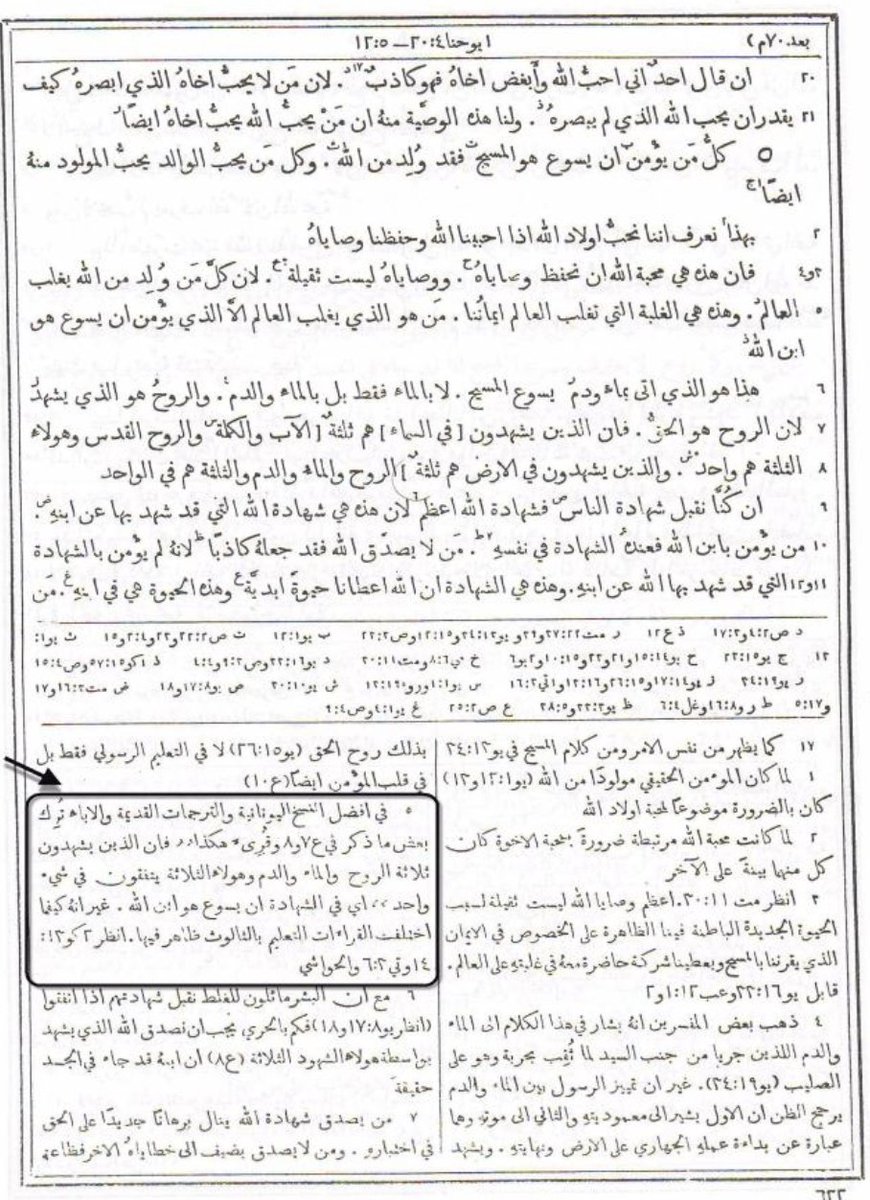 بعد ٧٠م)
١يوحنا٢٠:٤ــ١٢:٥
٢٠ ان قال احدٌ اني احبُّ الله وأبغض اخاهُ فهو كاذبٌ١٧. لان مَن لا يحبُّ اخاهُ الذي ابصرهُ كيف
٢١ يقدر ان يحب الله الذي لم يبصرهُ. ولنا هذه الوصيَّة منهُ ان مَنْ يحبُّ الله يحبُّ اخاهُ ايضًا
٥ كلُّ مَن يؤْمن ان يسوع هو المسيح فقد وُلِد من الله. وكل مَن يحبُّ الوالد يحبُّ المولود منهُ
ايضًا
٢ بهذا نعرف اننا نحبُّ اولاد الله اذا احببنا الله وحفظنا وصاياهُ
٣و٤ فان هذه هي محبة الله ان نحفظ وصاياهُ. ووصاياهُ ليست ثقيلة. لان كلَّ مَن وُلِد من الله يغلب
٥ العالم. وهذه هي الغلبة التي تغلب العالم ايمانُنا. مَن هو الذي يغلب العالم الاَّ الذي يؤْمن ان يسوع هو
ابن الله
٦ هذا هو الذي اتى بماءٍ ودمٍ يسوع المسيح. لا بالماء فقط بل بالماء والدم. والروحُ هو الذي يشهدُ
٧ لان الروح هو الحق. فان الذين يشهدون [في السماء] هم ثلثةٌ [الآب والكلمة والروح القدس وهولاء
٨ الثلثة هم واحد. والذين يشهدون في الارض هم ثلثةٌ] الروح والماء والدم والثلثة هم في الواحد
٩ ان كُنَّا نقبل شهادة الناس فشهادة الله اعظم٦ لان هذه هي شهادة الله التي قد شهد بها عن ابنهِ.
١٠ من يؤْمن بابن الله فعندهُ الشهادة في نفسهِ٧. مَن لا يصدّق الله فقد جعلهُ كاذبًا لانهُ لم يؤمن بالشهادة
١١و١٢ التي قد شهد بها الله عن ابنهِ. وهذه هي الشهادة ان الله اعطانا حيوةً ابديَّة وهذه الحيوة هي في ابنهِ. مَن
١٧ كما يظهر من نفس الامر ومن كلام المسيح في يو١٢:٢٤
١ لما كان المؤمن الحقيقي مولودًا من الله (يو١٢:١و١٣)
كان بالضرورة موضوعًا لمحبة اولاد الله
٢ لما كانت محبة الله مرتبطة ضرورةً بمحبة الاخوة كان
كل منهما بينة على الآخر
٣ انظر مت ٣٠:١١. اعظم وصايا الله ليست ثقيلة لسبب
الحيوة الجديدة الباطنة فينا الظاهرة على الخصوص في الايمان
الذي يقرننا بالمسيح ويعطينا شركة حاضرة معهُ في غلبتهِ على العالم.
قابل يو٢٢:١٦ وعب١:١٢و٢
٤ ذهب بعض المفسرين انهُ يشار في هذا الكلام الى الماء
والدم اللذين جريا من جنب السيد لما ثُقِب بحربة وهو على
الصليب (يو٣٤:١٩). غير ان تمييز الرسول بين الماء والدم
يرجح الظن ان الاول يشير الى معموديتهِ والثاني الى موتهِ وهما
عبارة عن بداءة عملهِ الجهاري على الارض ونهايتهِ. ويشهد
بذلك روح الحق (يو٢٦:١٥) لا في التعليم الرسولي فقط بل
في قلب المؤمن ايضًا (ع١٠)
٥ في افضل النسخ اليونانية والترجمات القديمة والاباء تُرِك
بعض ما ذكر في ع٧و٨ وقُرِئَ هكذا،، فان الذين يشهدون
ثلاثة الروح والماء والدم وهولاء الثلاثة يتفقون في شيء
واحد،، اي في الشهادة ان يسوع هو ابن الله. غير انهُ كيفما
اختلفت القراءات التعليم بالثالوث ظاهر فيها. انظر ٢كو١٣:
١٤وتي٦:٣ والحواشي
٦ مع ان البشر مائلون للغلط نقبل شهادتهم اذا اتفقوا
(انظر يو١٧:٨و١٨) فكم بالحري يجب ان نصدق الله الذي يشهد
بواسطة هولاء الشهود الثلاثة (ع٨) ان ابنهُ قد جاء في الجسد
حقيقةً
٧ من يصدق شهادة الله ينال برهانًا جديدًا على الحق
في اختبارهِ. ومن لا يصدق يضيف الى خطاياهُ الاخر فظاعة
٦٢٢